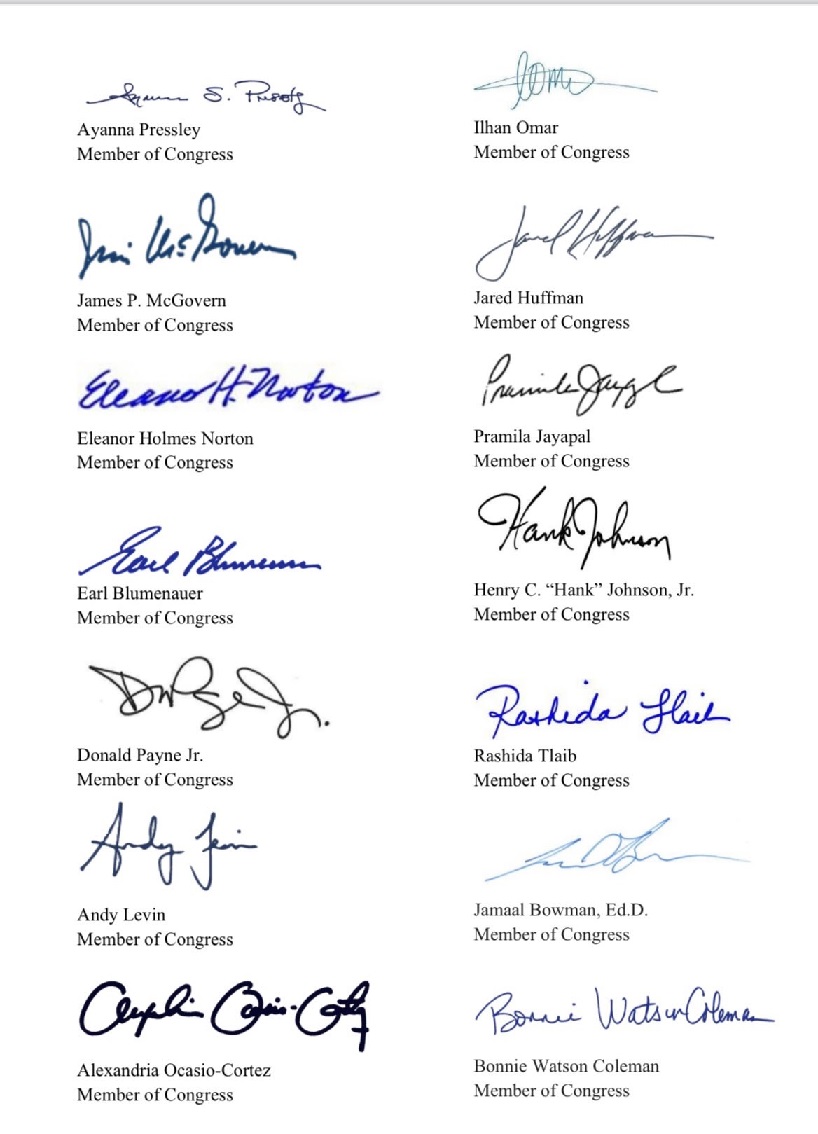 Ayanna Pressley
Member of Congress
Ilhan Omar
Member of Congress
Jim McGovern
James P. McGovern
Member of Congress
Jared Huffman
Jared Huffman
Member of Congress
Eleanor H. Norton
Eleanor Holmes Norton
Member of Congress
Pramila Jayapal
Pramila Jayapal
Member of Congress
Earl Blumenauer
Earl Blumenauer
Member of Congress
Hank Johnson
Henry C. “Hank” Johnson, Jr.
Member of Congress
Donald Payne Jr.
Member of Congress
Rashida Tlaib
Rashida Tlaib
Member of Congress
Andy Levin
Andy Levin
Member of Congress
Jamaal Bowman, Ed.D.
Member of Congress
Alexandria Ocasio-Cortez
Member of Congress
Bonnie Watson Coleman
Bonnie Watson Coleman
Member of Congress